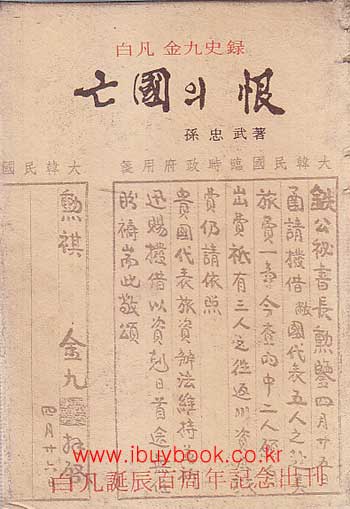 白凡 金九史録
亡國의 恨
孫忠武著
大韓民國臨時政府用箋
大韓民國
鉄公祕書長勳鑒四月廿五日
函請撥借敝國代表五人之
旅費一事今查內中二人
出費祗有三人之往返川資
貴仍請依照
貴國代表旅資辦法維持
迅賜撥借以資剋日首途
盼禱耑此敬頌
勳祺
金九 拜啓
四月廿六日
www.ibuybook.co.kr
白凡誕辰百周年記念出刊